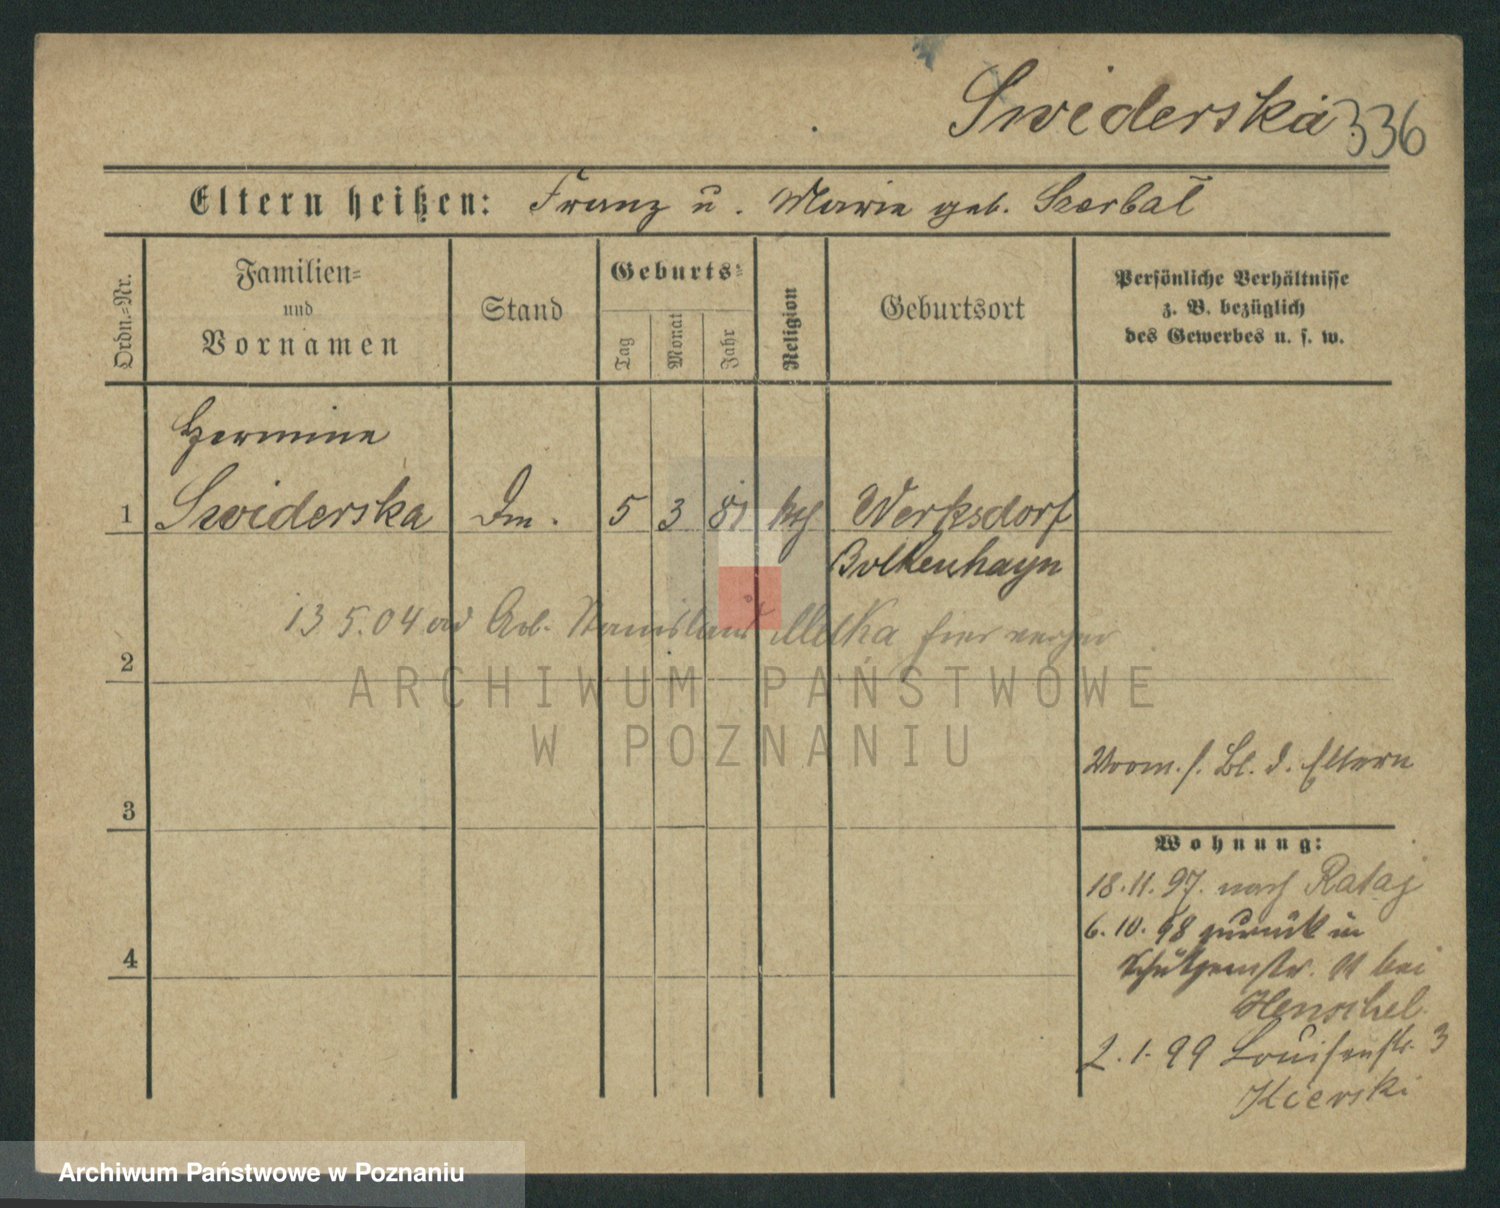 Swiderska 336
Eltern heißen: Franz u. Marie geb. Szerbal
Ordn.=Nr.
Familien=
und
Vornamen
Stand
Geburts=
Tag
Monat
Jahr
Religion
Geburtsort
Persönliche Verhältnisse
z. B. bezüglich
des Gewerbes u. s. w.
Hermine
1 Swiderska Dm. 5 3 81 kth Werksdorf
Bolkenhayn
13 5.04 Arb. Stanislaus Metka hier
2
ARCHIWUM PAŃSTWOWE
W POZNANIU
Vorm. s. Bl. d. Eltern
3
Wohnung:
18.11.97. nach Rataj
6.10.98 zurück in
4
Schützenstr. 11 bei
Henschel.
2.1.99 Louisenstr. 3
Kierski
Archiwum Państwowe w Poznaniu